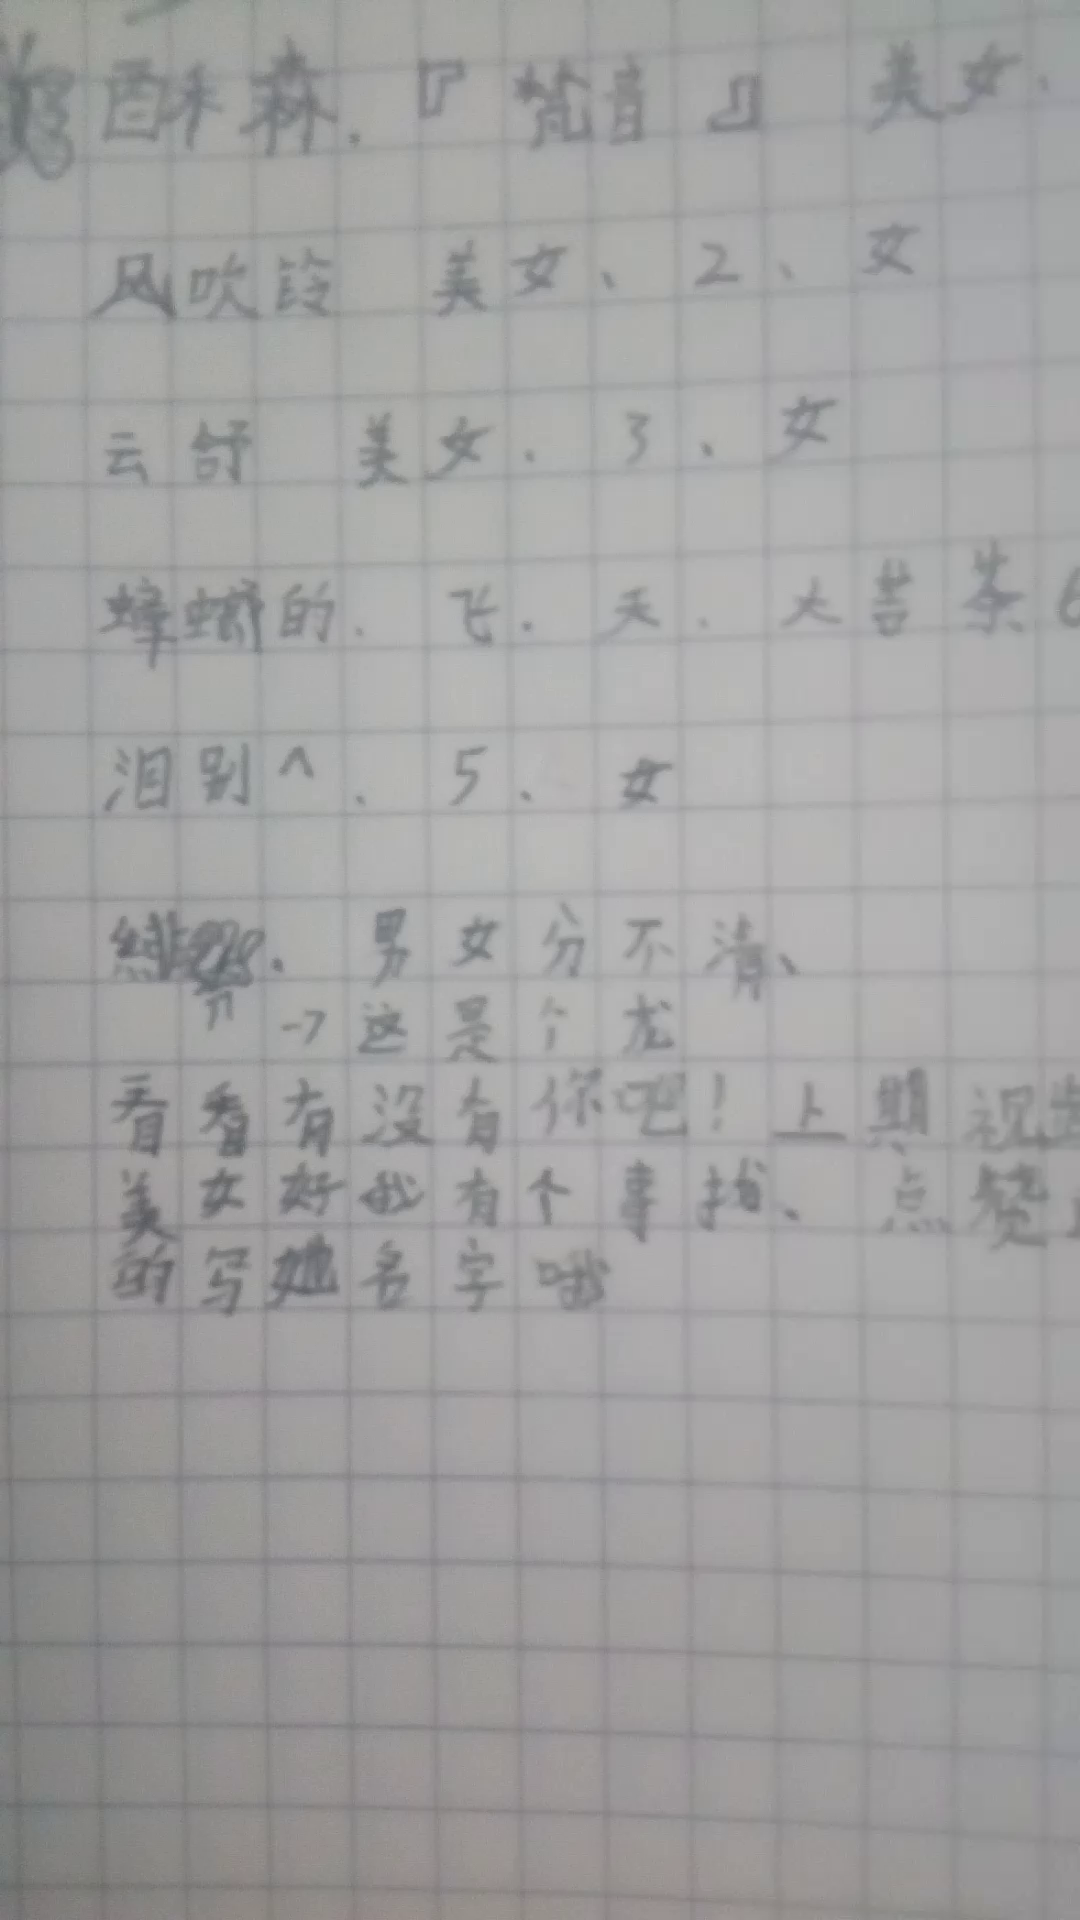 森.『梵音』 美女.
风吹铃 美女、2、女
云舒 美女.3、女
蟑螂的.飞.天.大苦茶6
泪别^.5.女
緋.男女分不清、
→这是个龙
看看有没有你吧!上期视
美女好我有个事找、点赞
的写她名字哦